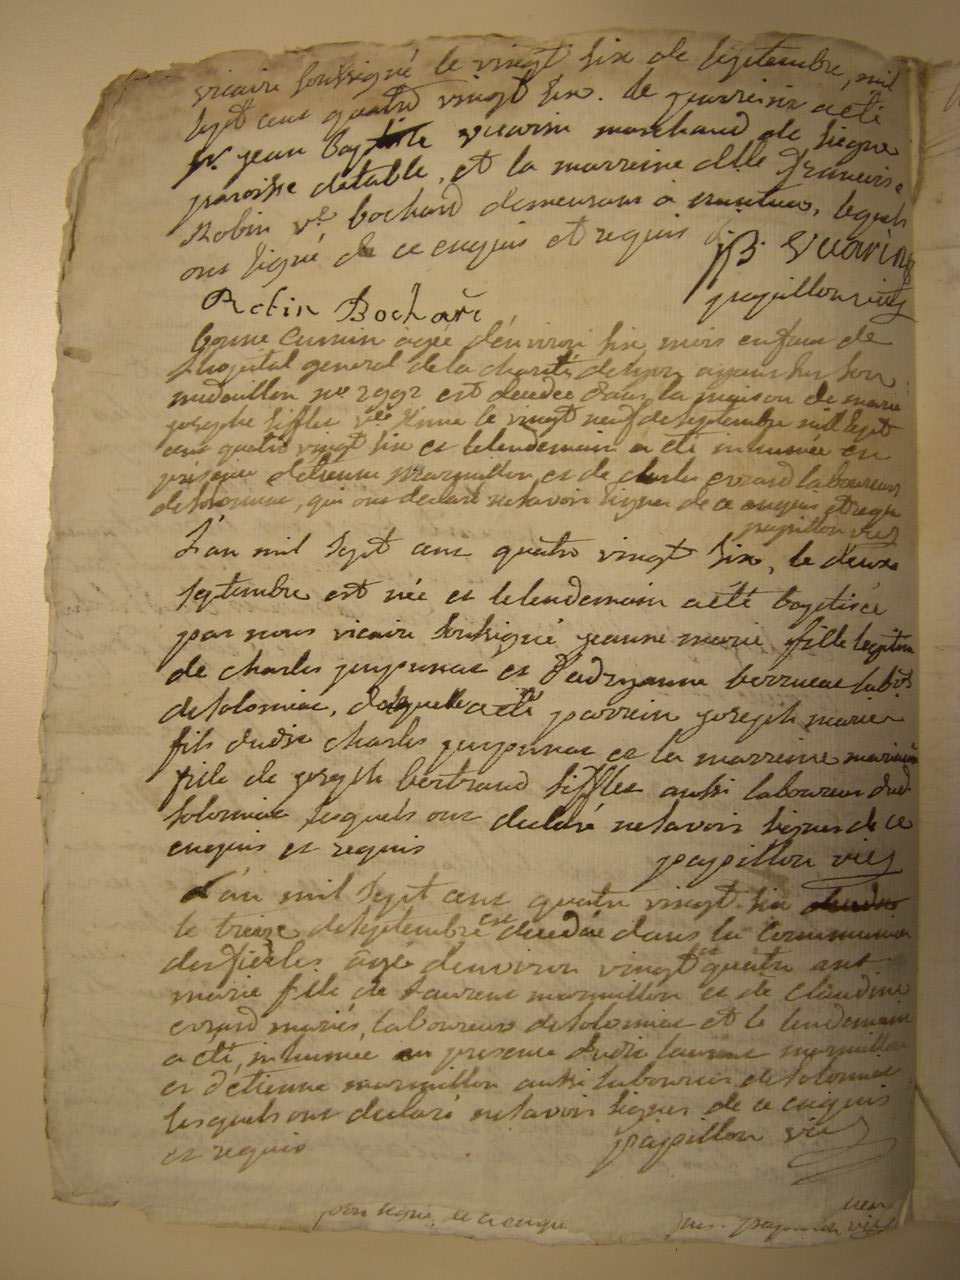 vicaire soussigné le vingt six de septembre, mil
sept cent quatre vingt six. le parrein a eté
sr jean baptiste vuarin marchand de
paroisse detable, et la marreine dlle francoise
Robin ve bochard demeurant a lequels
ont signé de ce enquis et requis JB Vuarin
papillon vic
Robin Bochard
bonne agée d'environ six mois enfant de
l'hopital general de la charité de lyon ayant sur son
medaillon no 2992 est decedée dans la maison de marie
josephe siffler vve le vingt neuf de septembre mil sept
cent quatre vingt six et le lendemain a eté inhumée en
presence detienne marmillon et de charles evrard laboureurs
de solomiac, qui ont declaré ne savoir signer de ce enquis et requis
papillon vic
L'an mil sept cent quatre vingt six, le deux
septembre est née et le lendemain a eté baptisée
par nous vicaire soussigné jeanne marie fille legitime
de charles et laboŕs
de solomiac, de laquelle a eté parrein joseph marie
fils dudit charles et la marreine
fille de joseph bertrand siffler aussi laboureur dud
solomiac lesquels ont declaré ne savoir signer de ce
enquis et requis papillon vic
L'an mil sept cent quatre vingt six
le treize de septembre est decedée dans la communion
des fideles agée d'environ vingt quatre ans
marie fille de laurent marmillon et de claudine
evrard mariés, laboureurs de solomiac et le lendemain
a eté inhumée en presence dudit laurent marmillon
et d'étienne marmillon aussi laboureur de solomiac
lesquels ont declaré ne savoir signer de ce enquis
et requis papillon vic